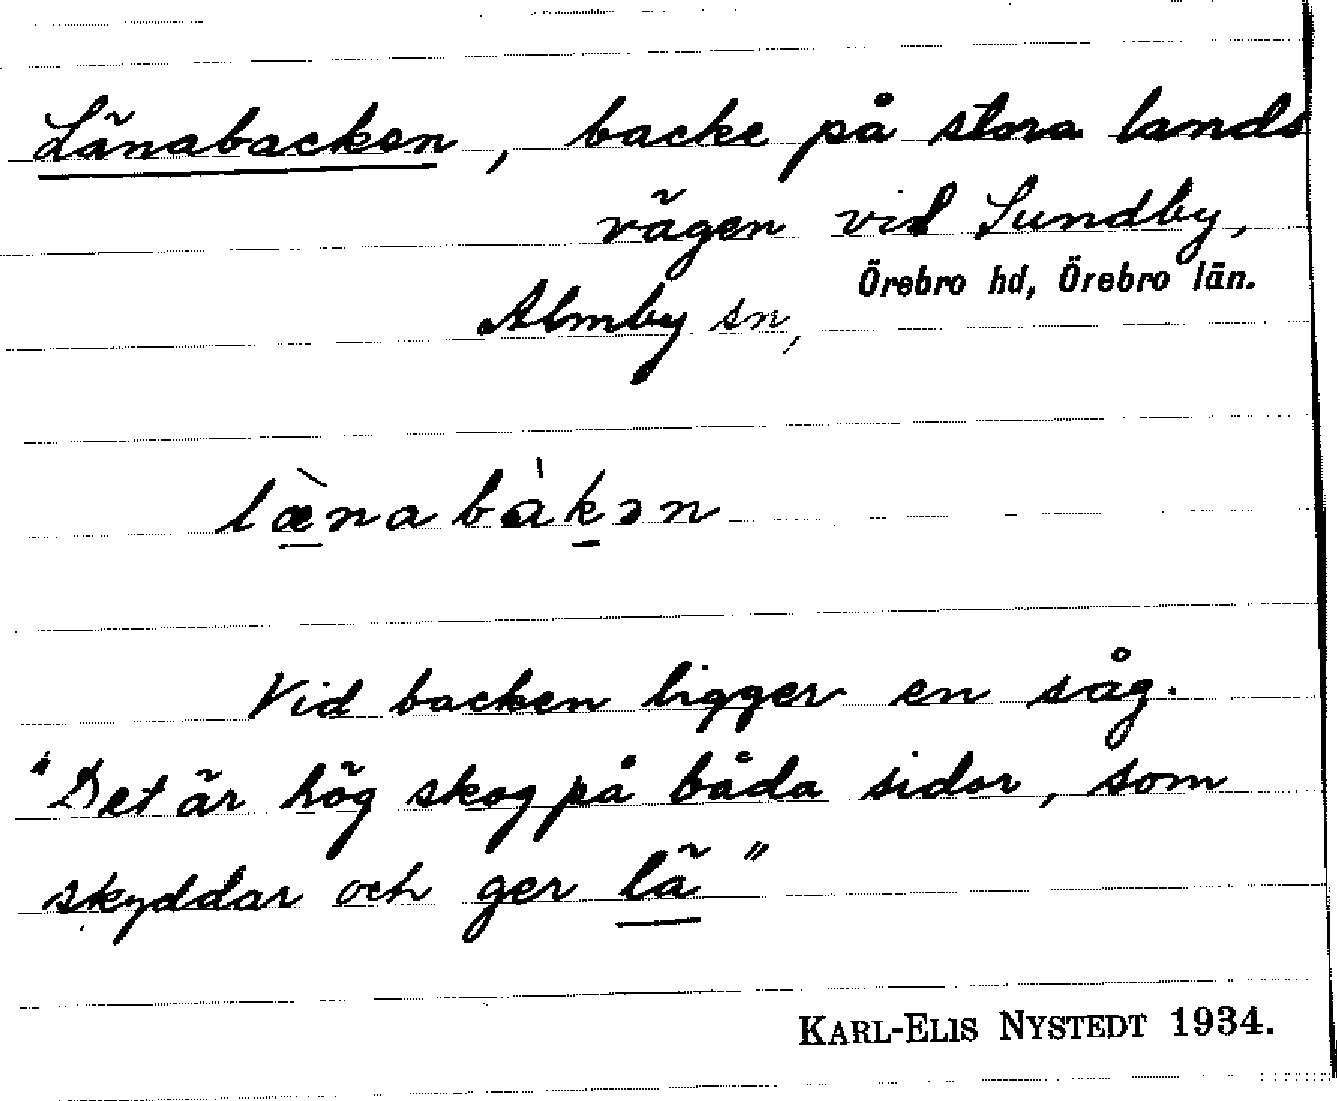 Länabacken, backe på stora lands
vägen vid Sundby,
Örebro hd, Örebro län.
Almby sn,
læ̀nabàkən
Vid backen ligger en såg.
"Det är hög skog på båda sidor, som
skyddar och ger lä"
KARL-ELIS NYSTEDT 1934.